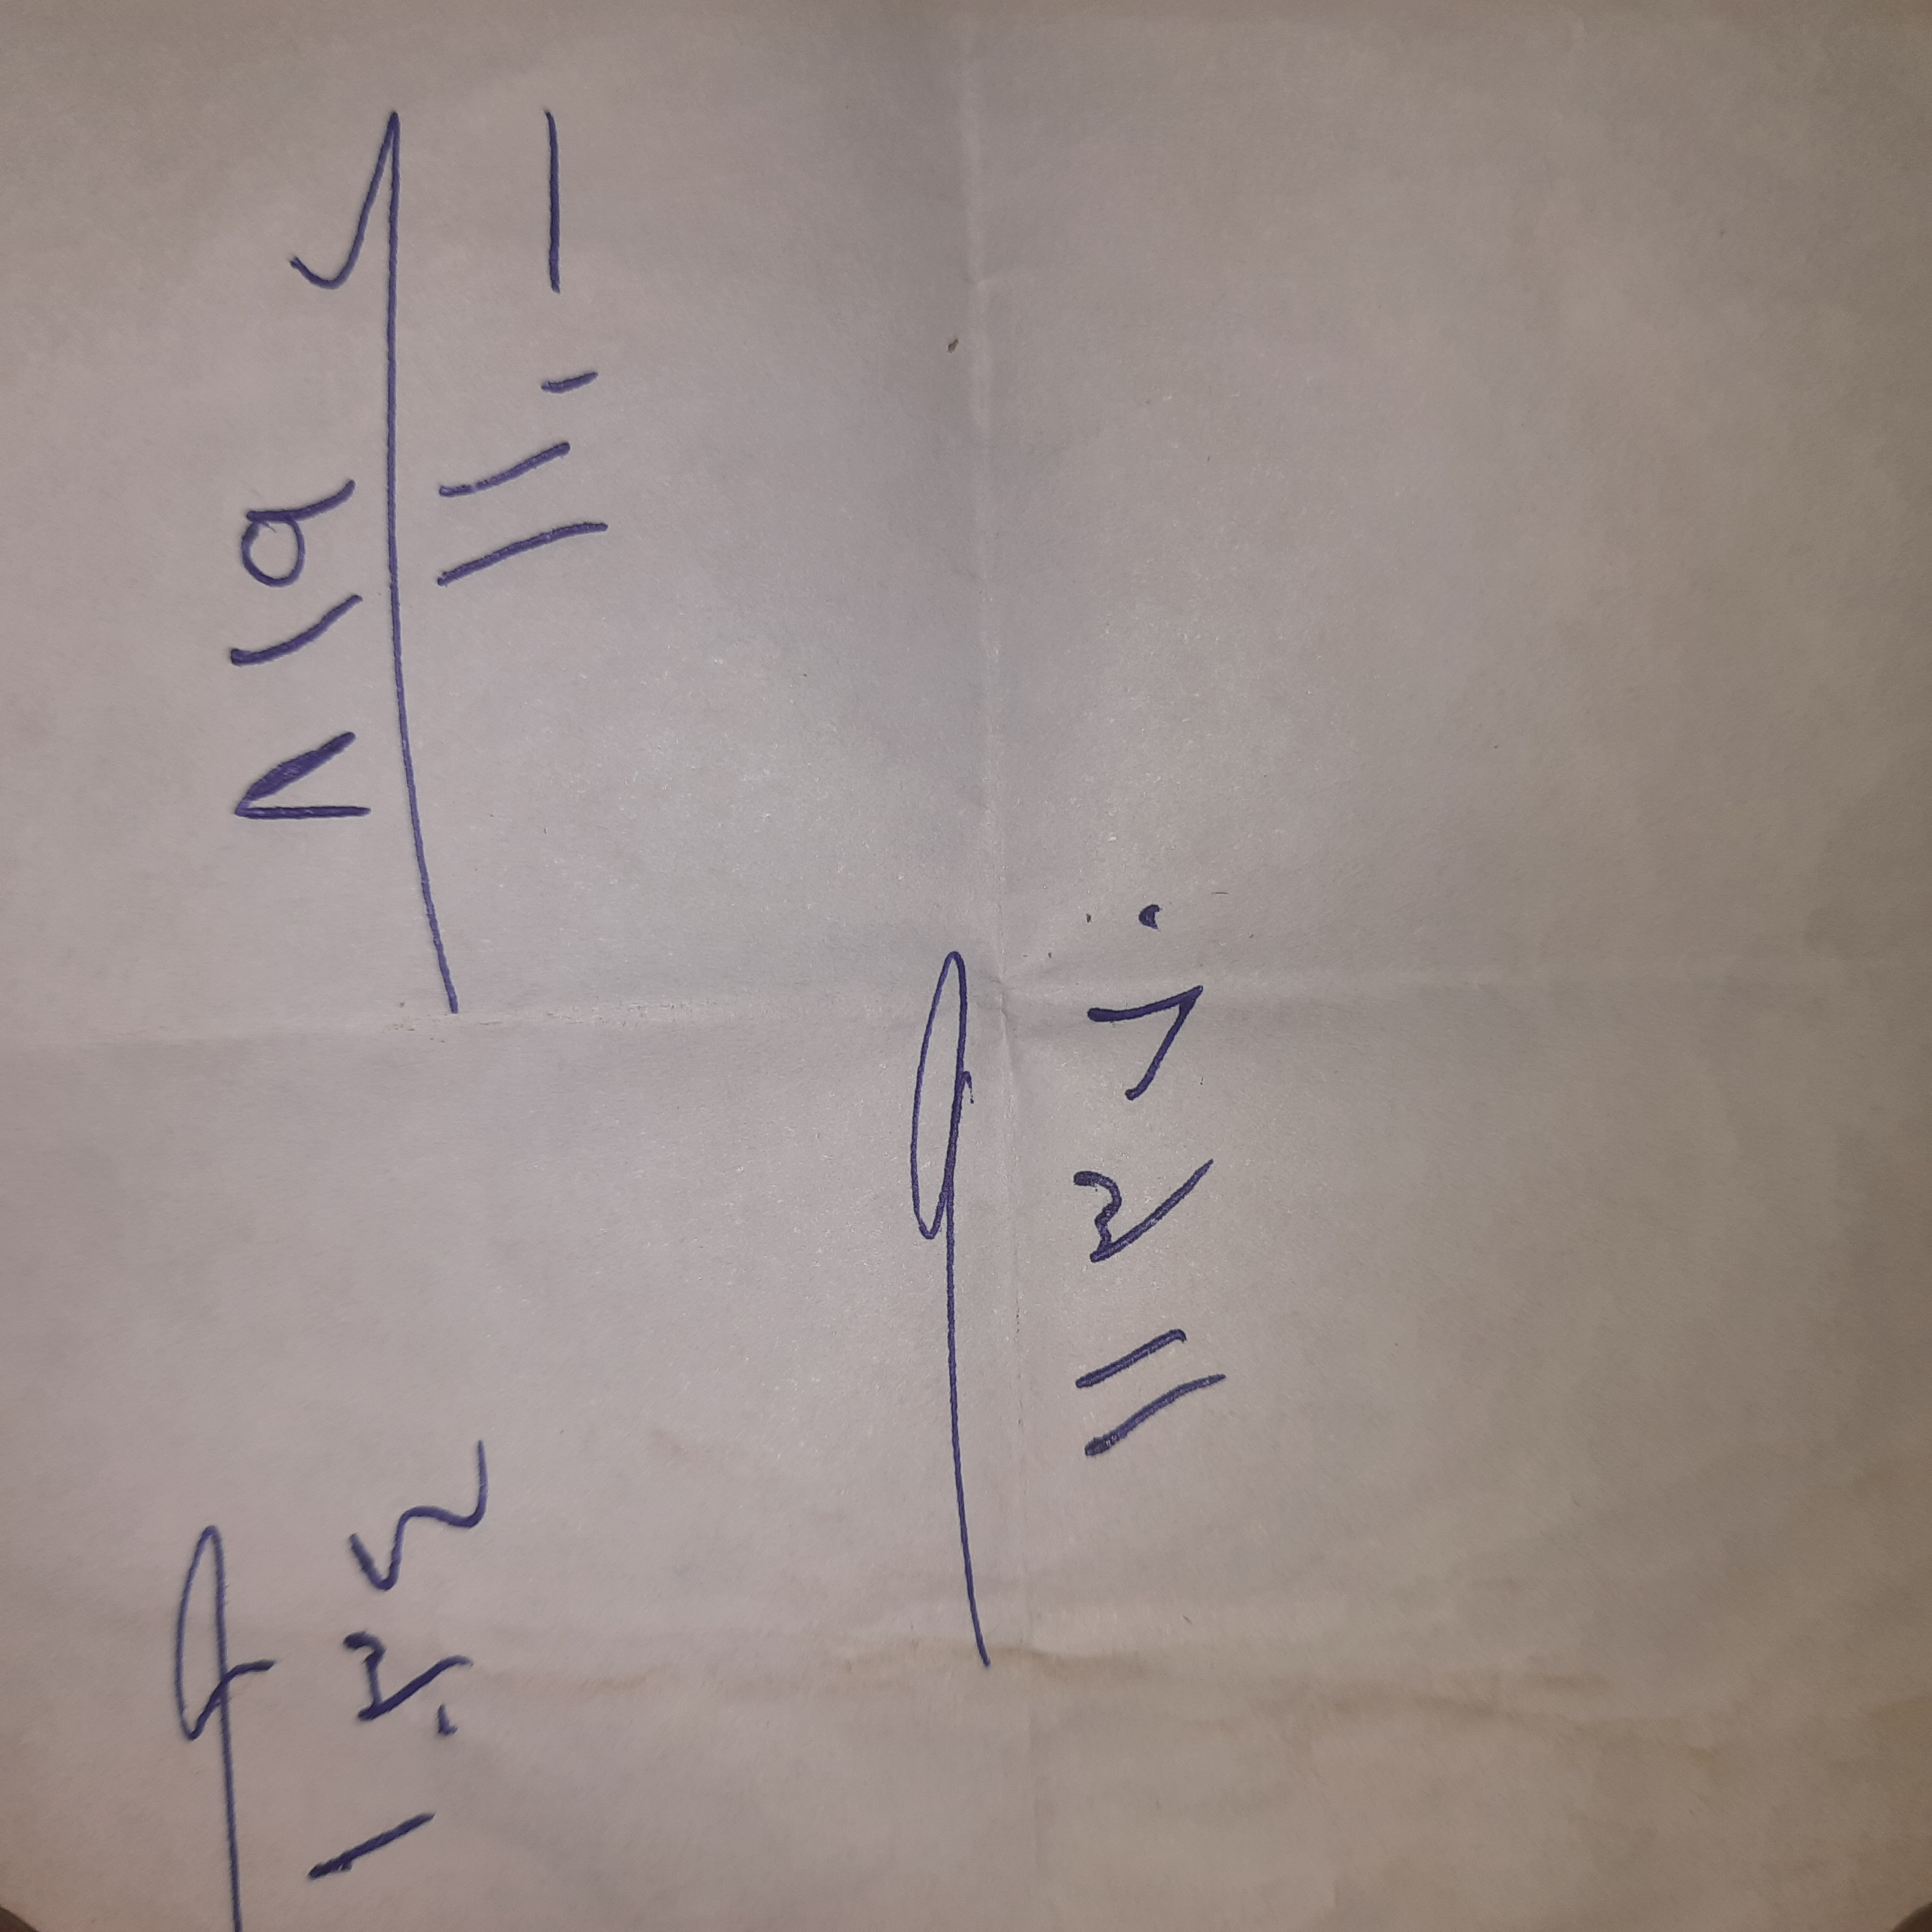 ٨١٩
١١٠ —
١٠٣٤
١١٣٧٠